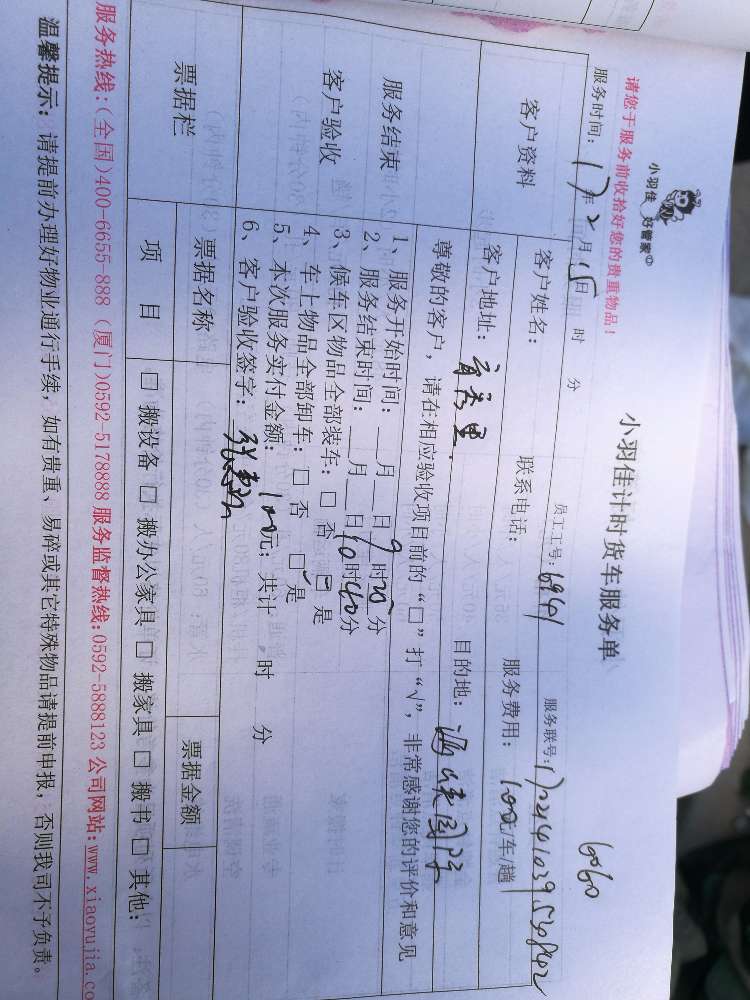 小羽佳 好管家
请您于服务前收拾好您的贵重物品！
小羽佳计时货车服务单
6060
服务时间：17年2月15日 时 分 员工工号：6941 服务联号：
客户资料
客户姓名： 联系电话： 服务费用：100元/车/趟
客户地址： 目的地：
服务结束
客户验收
尊敬的客户，请在相应验收项目前的“□”打“√”，非常感谢您的评价和意见
1、服务开始时间：__月__日9时20分
2、服务结束时间：__月__日10时40分
3、候车区物品全部装车：□ 否 □ 是
4、车上物品全部卸车：□ 否 □ 是
5、本次服务实付金额：100元；共计 时 分
6、客户验收签字：
票据栏
票据名称 票据金额
项 目
□ 搬设备 □ 搬办公家具 □ 搬家具 □ 搬书 □ 其他：
服务热线：(全国)400-6655-888 (厦门)0592-5178888 服务监督热线：0592-5888123 公司网站：www.xiaoyujia.co
温馨提示：请提前办理好物业通行手续，如有贵重、易碎或其它特殊物品请提前申报，否则我司不予负责。